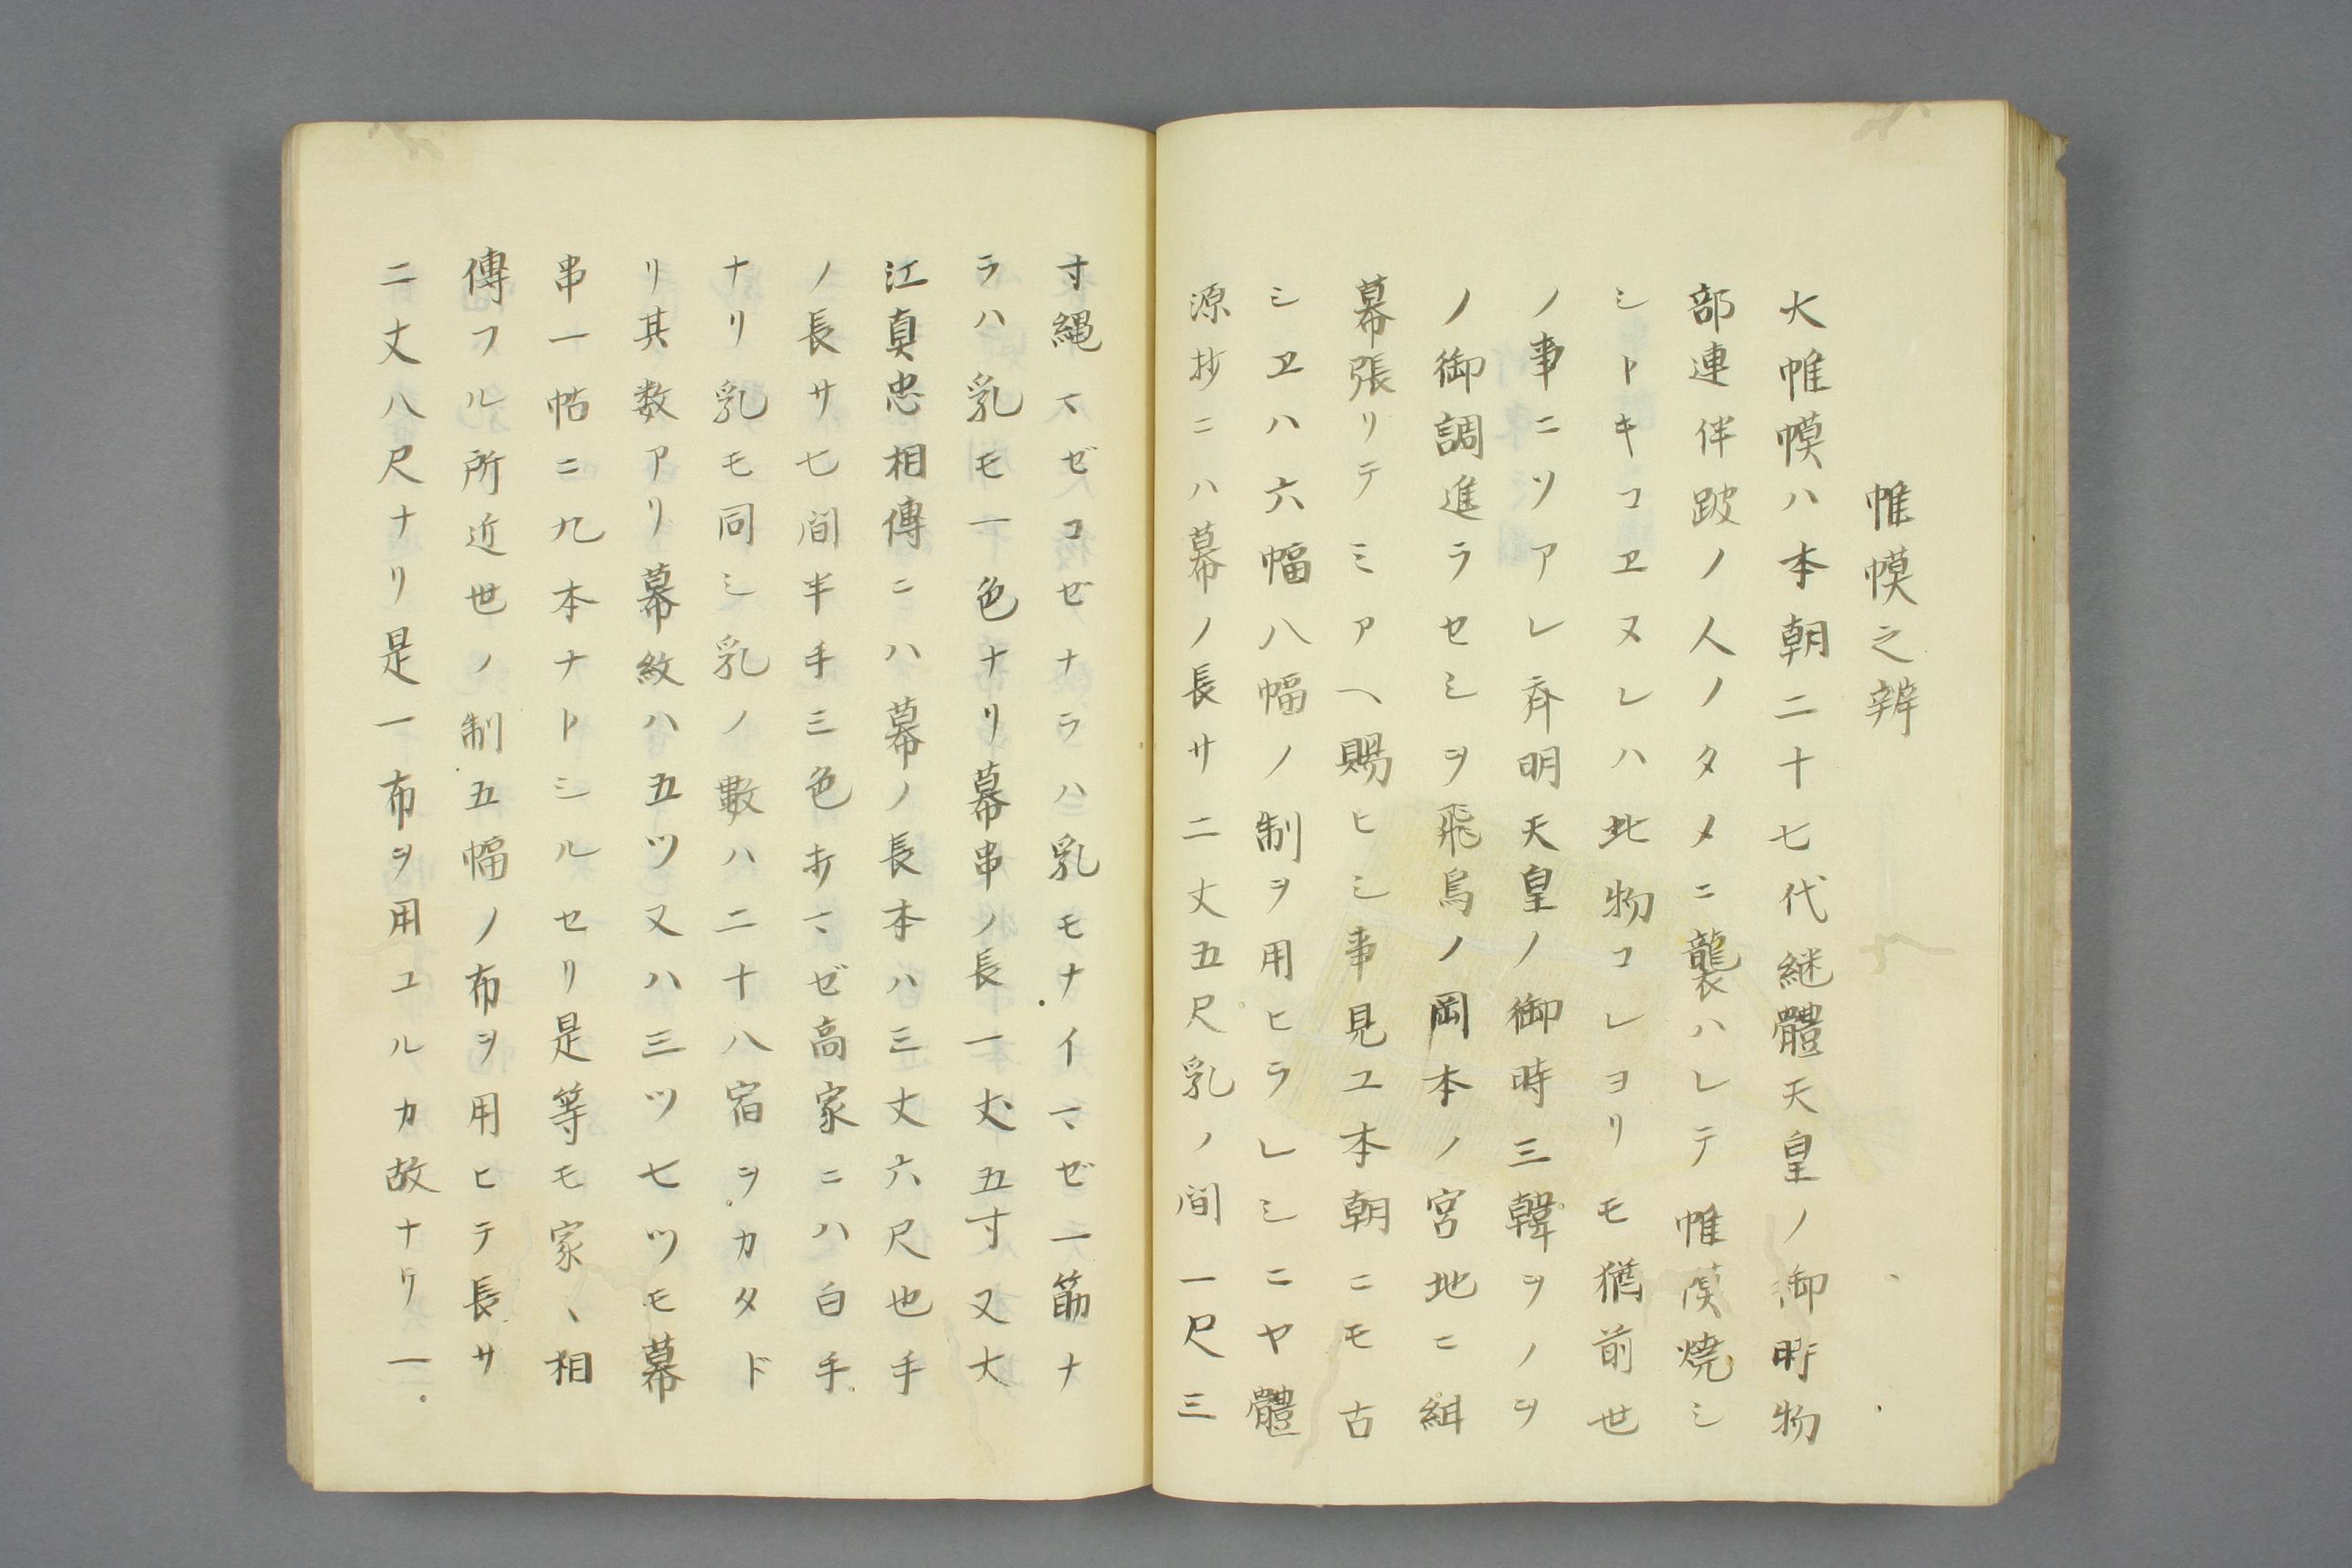 帷幙之辨
大帷幙ハ本朝二十七代継體天皇ノ御時物
部連伴跛ノ人ノタメニ襲ハレテ帷幙焼シ
シトキコヱヌレハ此物コレヨリモ猶前世
ノ事ニソアレ斉明天皇ノ御時三韓ヲノヲ
ノ御調進ラセシヲ飛鳥ノ岡本ノ宮地ニ紺
幕張リテミアヘ賜ヒシ事見ユ本朝ニモ古
シヱハ六幅八幅ノ制ヲ用ヒラレシニヤ體
源抄ニハ幕ノ長サ二丈五尺乳ノ間一尺三
寸縄マゼコゼナラハ乳モナイマゼ一筋ナ
ラハ乳モ一色ナリ幕串ノ長一丈五寸又大
江真忠相傳ニハ幕ノ長本ハ三丈六尺也手
ノ長サ七間半手三色ホマゼ高家ニハ白手
ナリ乳モ同シ乳ノ數ハ二十八宿ヲカタド
リ其数アリ幕紋ハ五ツ又ハ三ツ七ツモ幕
串一帖ニ九本ナトシルセリ是等モ家〻相
傳フル所近世ノ制五幅ノ布ヲ用ヒテ長サ
二丈八尺ナリ是一布ヲ用ユルカ故ナリ一